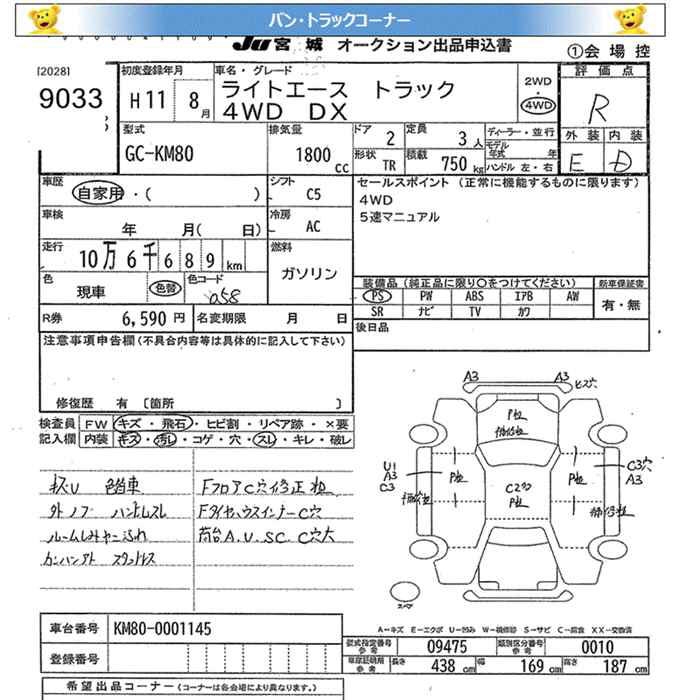 バン・トラックコーナー
JU 宮 城 オークション出品申込書
①会 場 控
[2028]
9033
初度登録年月
H 11 8 月
車名・グレード
ライトエース トラック
4WD DX
2WD
4WD
評 価 点
R
外 装 内 装
E D
型式
GC-KM80
排気量
1800 cc
ドア 2
定員 3 人
形状 TR
積載 750 kg
ディーラー・並行
モデル年式 年
ハンドル 左・右
車歴
自家用・( )
シフト
C5
セールスポイント (正常に機能するものに限ります)
4WD
5速マニュアル
車検
年 月( 日)
冷房
AC
走行
10万6千689 km
燃料
ガソリン
色
現車
色替
色コード
058
装備品 (純正品に限り○をつけてください)
新車保証書
PS PW ABS エアB AW
SR ナビ TV カワ
有・無
R券 6,590 円
名変期限 月 日
後日品
注意事項申告欄 (不具合内容等は具体的に記入して下さい)
修復歴 有 〔箇所 〕
検査員記入欄
FW キズ・飛石・ヒビ割・リペア跡・×要
内装 キズ・汚れ・コゲ・穴・スレ・キレ・破レ
色替車
ハンドルスレ
FフロアC穴修正 粒
FタイヤハウスインナーC穴
荷台A.U.S.C. C穴大
A3 A3
P粒
U1
A3
C3
P粒
P粒
C3穴
A3
P粒
スペア
A－キズ E－エクボ U－凹み W－補修跡 S－サビ C－腐食 XX－交換済
車台番号 KM80-0001145
登録番号
型式指定番号 参考 09475
類別区分番号 参考 0010
車庫証明用 参考 長さ 438 cm 幅 169 cm 高さ 187 cm
希望出品コーナー (コーナーは各会場により異なります。)